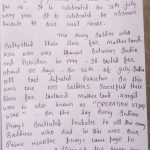 for us. It is celebrated on 26th July
every year. It is celebrated to observe
tribute to our real heroes.
The Army Soldier who
Sacrificed their lives for motherland
war was happened between India
and Pakistan in 1999. It lasted for
about 60 days. On 26th of July India
at last defeated Pakistan. On this
war our 500 Soldiers Sacrificed their
lives for beloved mother land
was is also known as "OPERATION VIJAY
WAR". On this day every Indians
Prays tribute to all the army
Soldiers who died in this war. Our
Prime minister prays